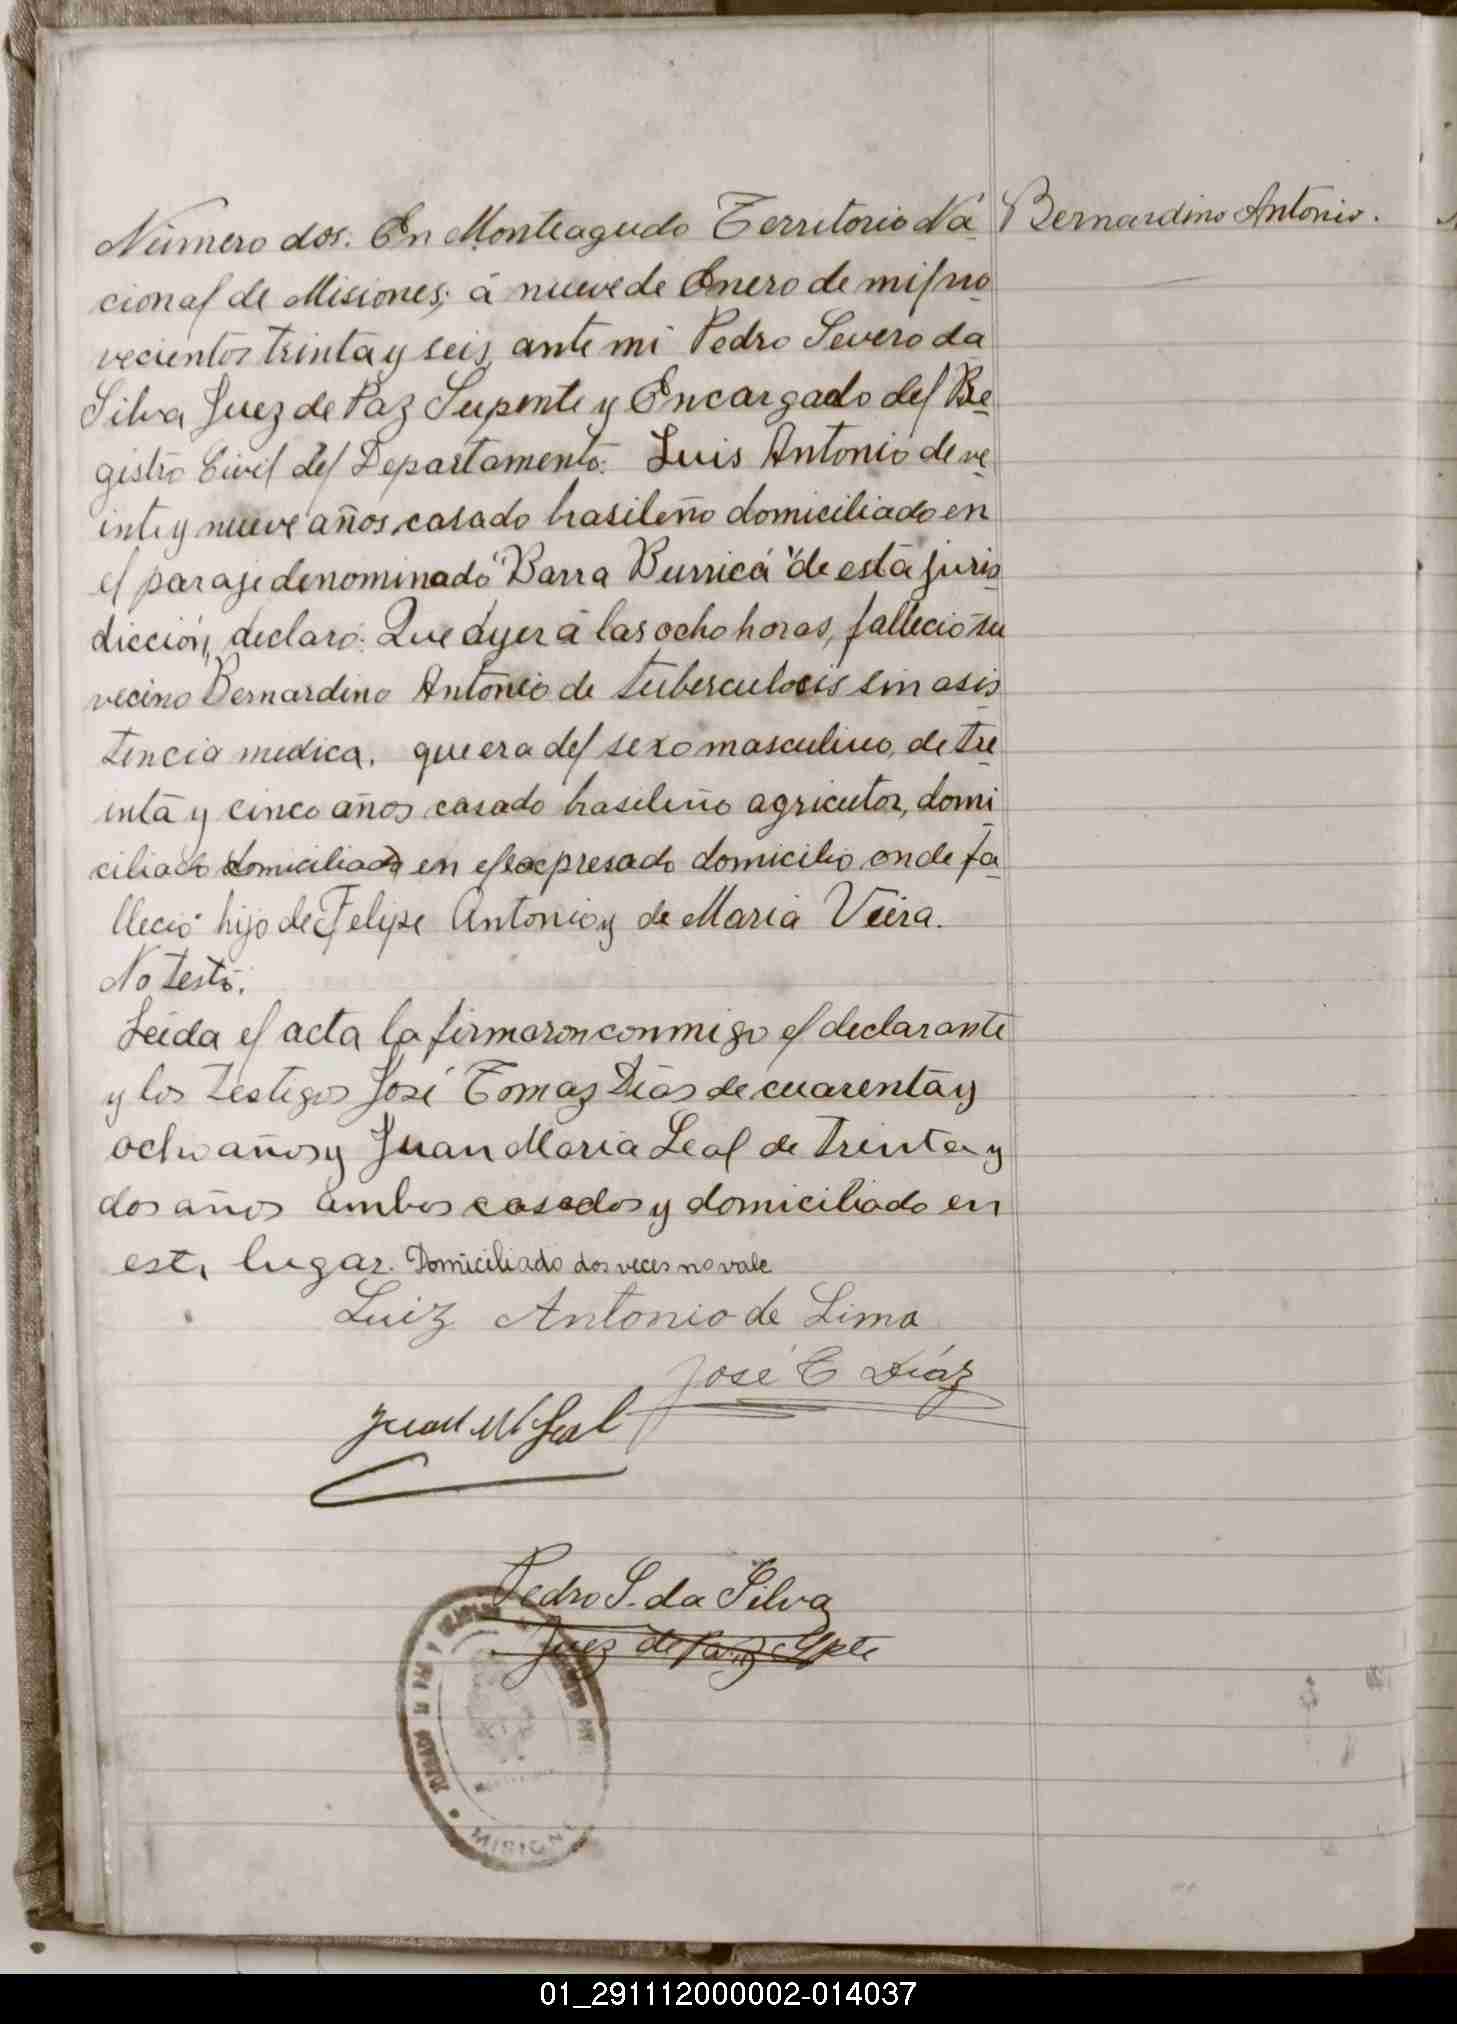 Número dos. En Monteagudo Territorio Na
Bernardino Antonio.
cional de Misiones, á nueve de Enero de mil no
vecientos trinta y seis, ante mi Pedro Severo da
Silva Juez de Paz Supente y Encargado del Re
gistro Civil del Departamento: Luis Antonio de ve
inte y nueve años, casado brasileño domiciliado en
el paraje denominado "Barra Burricá" de esta juris
dicción, declaró: Que áyer á las ocho horas, falleció su
vecino Bernardino Antonio de tuberculocis sin asis
tencia medica, que era del sexo masculino, de tre
inta y cinco años casado brasileño agricutor, domi
ciliado domiciliado en el expresado domicilio onde fa
lleció hijo de Felipe Antonio y de Maria Veira.
No testó.
Leida el acta la firmaron conmigo el declarante
y los testigos José Tomaz Dias de cuarenta y
ocho años y Juan Maria Leal de trinta y
dos años ambos casados y domiciliado en
este lugar. Domiciliado dos veces no vale
Luiz Antonio de Lima
José T Díaz
Juan M Leal
Pedro S. da Silva
Juez de Paz Splte
MISIONE
01_291112000002-014037